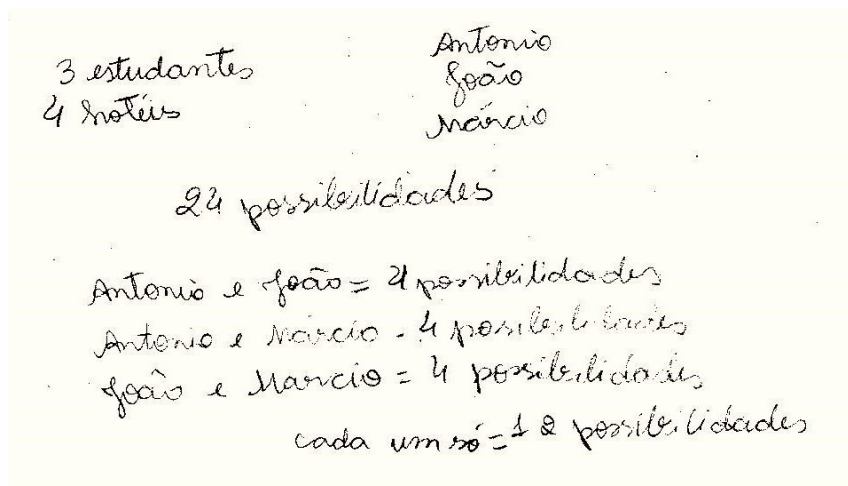 3 estudantes
4 hotéis
Antonio
João
Márcio
24 possibilidades
Antonio e João = 4 possibilidades
Antonio e Márcio - 4 possibilidades
João e Marcio = 4 possibilidades
cada um só = 12 possibilidades